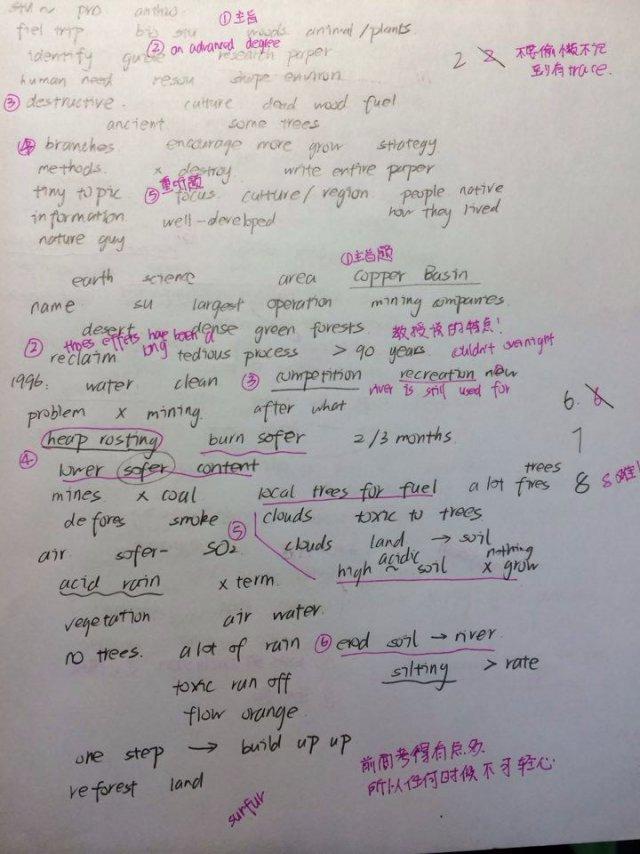 stu ~ pro anthro. ①主旨
fiel trip bio stu woods animal/plants.
② an advanced degree
identify guide research paper
2 2 不要偷懒不记
到有trace.
human need resou shape environ
③ destructive. culture dead wood fuel
ancient some trees
④ branches encourage more grow strategy
methods. x destroy. write entire paper
重听题
tiny topic ⑤ focus. culture/region. people native
information well-developed how they lived
nature guy
①主旨题
earth science area copper Basin
name su largest operation mining companies
desert dense green forests. 教授说的特点!
② thoes effets have been a long
reclaim tedious process > 90 years couldn't overnight
1996: water clean ③ competition recreation now
river is still used for
problem x mining. after what 6. 6
heap rosting burn sofer 2/3 months. 7
④ lower sofer content
mines x coal local trees for fuel a lot trees fires 8 8难!
defores smoke ⑤ clouds toxic to trees
air sofer- SO2 clouds land → soil
acid rain x term. high acidic ~ soil x nothing grow
vegetation air water.
no trees. a lot of rain ⑥ erod soil → river.
toxic run off silting > rate
flow orange
one step → build up up
前面考得有点多
reforest land 所以任何时候不可轻心
surfur